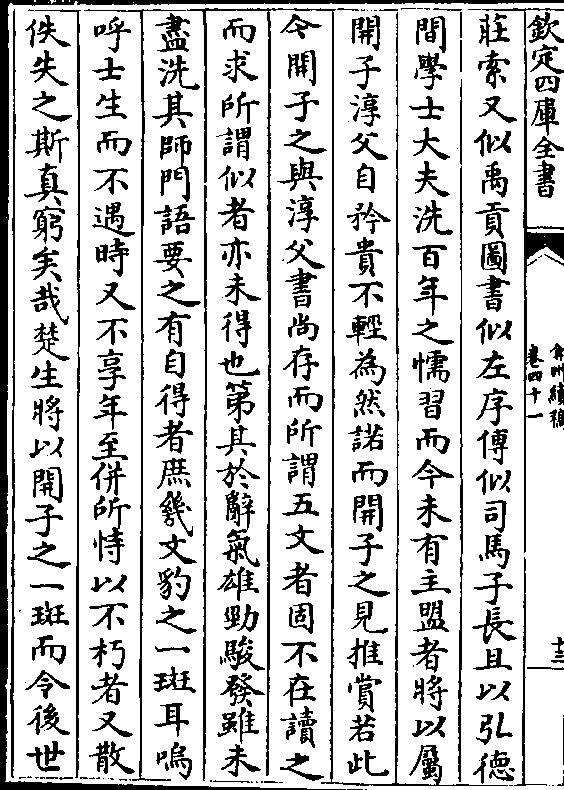 欽定四庫全書
弇州續稿
卷四十一
十三
莊索又似禹貢圖書似左序傳似司馬子長且以弘德
間學士大夫洗百年之懦習而今未有主盟者將以屬
開子淳父自矜貴不輕為然諾而開子之見推賞若此
今開子之與淳父書尚存而所謂五文者固不在讀之
而求所謂似者亦未得也第其於辭氣雄勁駿發雖未
盡洗其師門語要之有自得者庶幾文豹之一斑耳嗚
呼士生而不遇時又不享年至併所恃以不朽者又散
佚失之斯真窮矣哉楚生將以開子之一斑而令後世